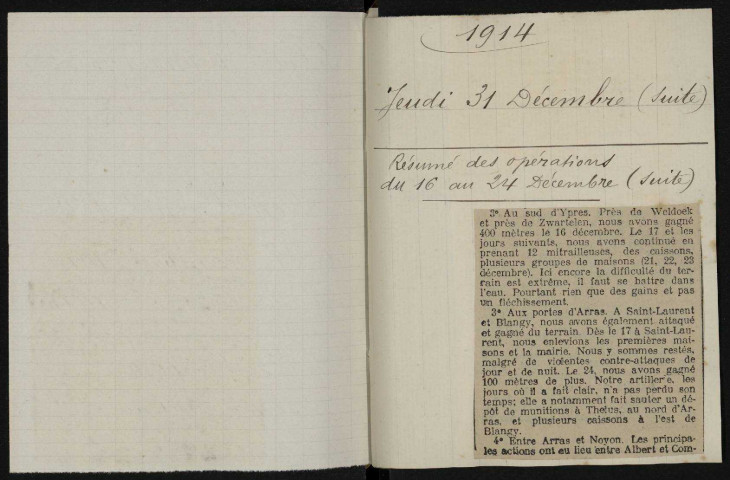 1914
Jeudi 31 Décembre (suite)
Résumé des opérations
du 16 au 24 Décembre (suite)
3° Au sud d'Ypres. Près de Weldoek
et près de Zwartelen, nous avons gagné
400 mètres le 16 décembre. Le 17 et les
jours suivants, nous avons continué en
prenant 12 mitrailleuses, des caissons,
plusieurs groupes de maisons (21, 22, 23
décembre). Ici encore la difficulté du ter-
rain est extrême, il faut se battre dans
l'eau. Pourtant rien que des gains et pas
un fléchissement.
3° Aux portes d'Arras. A Saint-Laurent
et Blangy, nous avons également attaqué
et gagné du terrain. Dès le 17 à Saint-Lau-
rent, nous enlevions les premières mai-
sons et la mairie. Nous y sommes restés,
malgré de violentes contre-attaques de
jour et de nuit. Le 24, nous avons gagné
100 mètres de plus. Notre artillerie, les
jours où il a fait clair, n'a pas perdu son
temps; elle a notamment fait sauter un dé-
pôt de munitions à Thelus, au nord d'Ar-
ras, et plusieurs caissons à l'est de
Blangy.
4° Entre Arras et Noyon. Les principa-
les actions ont eu lieu entre Albert et Com-